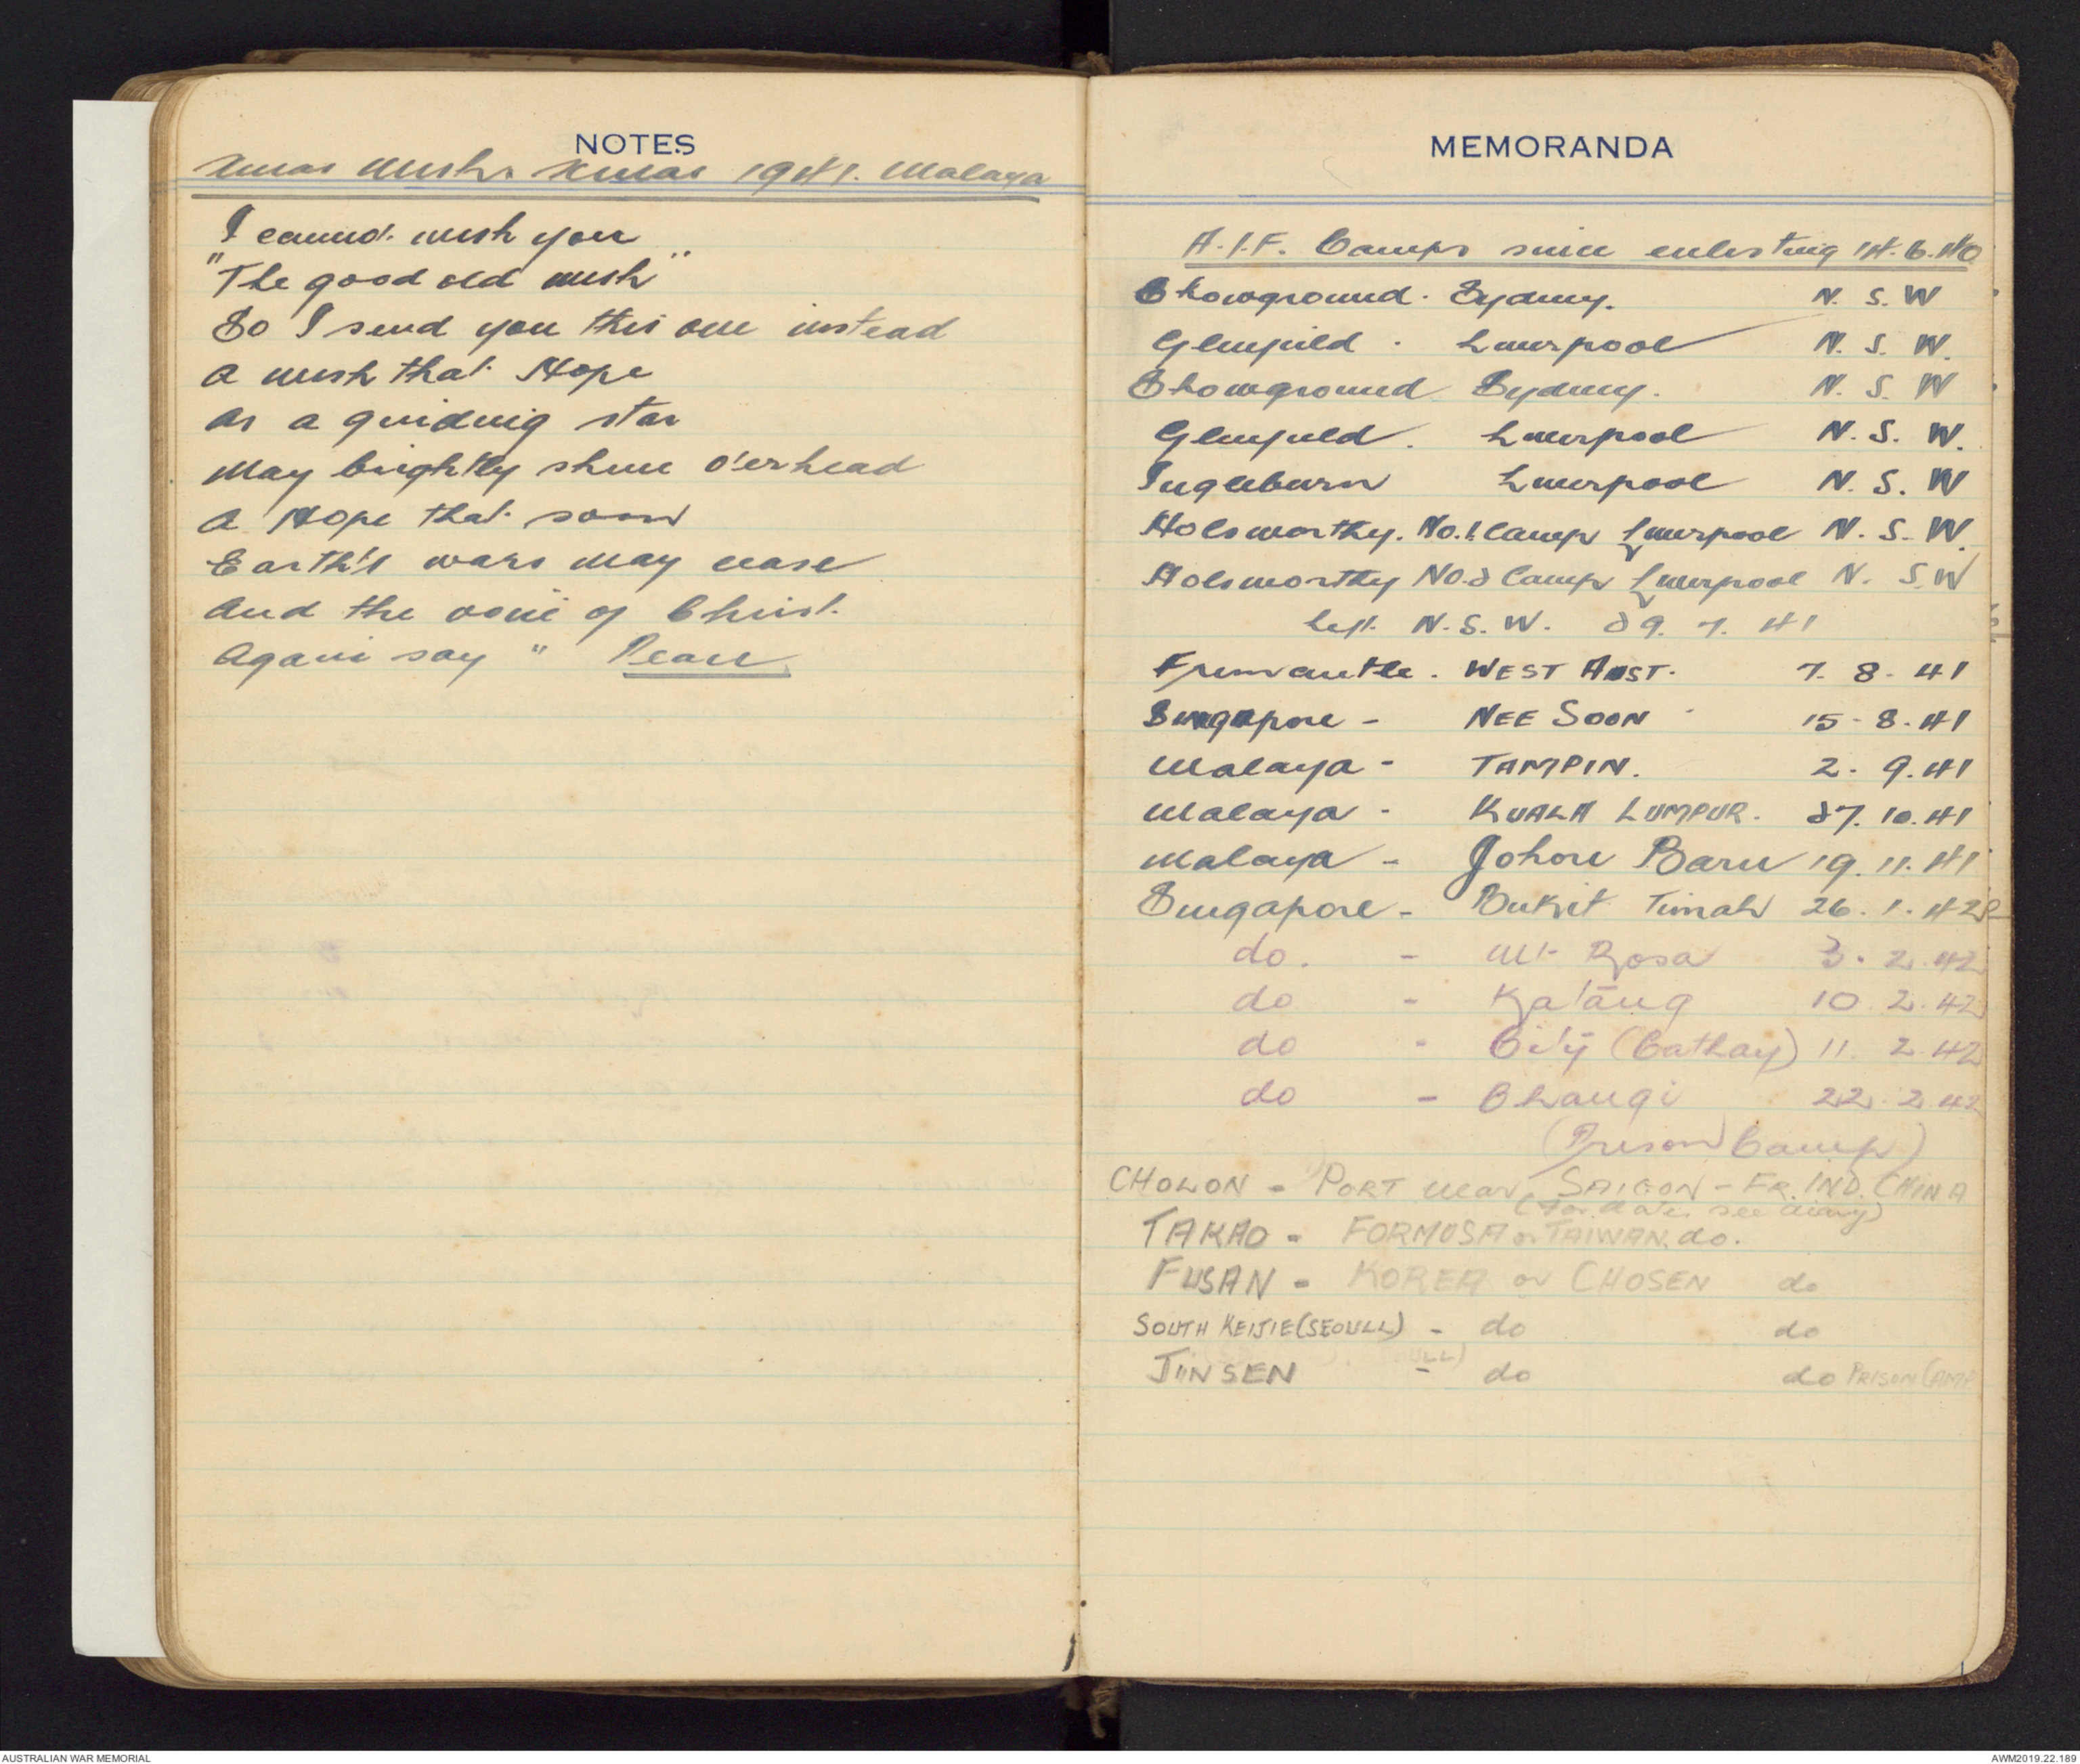 NOTES
Xmas Wishes Xmas 1941. Malaya
I cannot wish you
"The good old wish"
So I send you this one instead
A wish that Hope
As a guiding star
May brightly shine o'erhead
A Hope that soon
Earth's wars may cease
And the voice of Christ
Again say " Peace
MEMORANDA
A.I.F. Camps since enlisting 14.6.40
Showground. Sydney. N. S. W
Glenfield. Liverpool N. S. W.
Showground Sydney. N. S. W
Glenfield. Liverpool N. S. W.
Ingleburn Liverpool N. S. W
Holsworthy. No.1. Camp Liverpool N. S. W.
Holsworthy No.2 Camp Liverpool N. S.W
Left N.S.W. 29. 7. 41
Fremantle. WEST AUST. 7. 8. 41
Singapore - NEE SOON 15-8.41
Malaya - TAMPIN. 2. 9.41
Malaya - KUALA LUMPUR. 27.10.41
Malaya - Johore Baru 19.11.41
Singapore - Bukit Timah 26.1.42
do. - Mt Rosa 3. 2.42
do - Katong 10 2.42
do - City (Cathay) 11. 2 42
do - Changi 22. 2 42
(Prison Camp)
CHOLON - PORT near SAIGON - FR. IND. CHINA
(for dates see diary)
TAKAO - FORMOSA or TAIWAN. do.
FUSAN - KOREA or CHOSEN do
SOUTH KEIJIE (SEOULL) - do do
JINSEN - do do PRISON CAMP
AUSTRALIAN WAR MEMORIAL
AWM2019.22.189